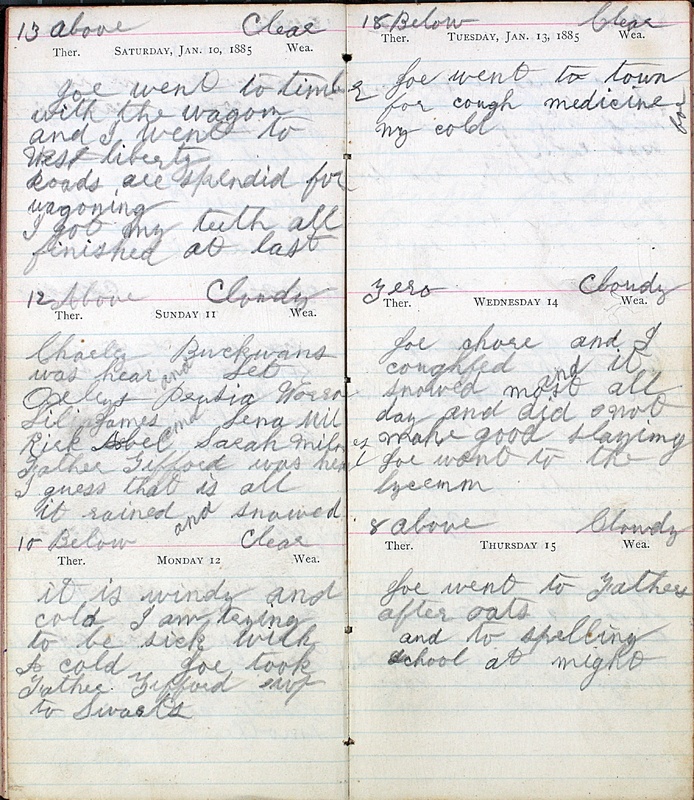 13 above Clear
Ther. SATURDAY, JAN. 10, 1885 Wea.
Joe went to timber
with the wagon
and I went to
West liberty
Roads are splendid for
wagoning
I got my teeth all
finished at last
12 Above Cloudy
Ther. SUNDAY 11 Wea.
Buckmans
was hear and Set
James and Lena Mil
Rick Sarah Milnes
Father Gifford was hear
I guess that is all
it rained and snowed
10 Below Clear
Ther. MONDAY 12 Wea.
it is windy and
cold I am trying
to be sick with
a cold Joe took
Father Gifford
to Swarts
18 Below Clear
Ther. TUESDAY, JAN. 13, 1885 Wea.
Joe went to town
for cough medicine for
my cold
Zero Cloudy
Ther. WEDNESDAY 14 Wea.
Joe chore and I
coughfed and it
snowed most all
day and did not
make good slaying
Joe went to the
lyceemm
8 above Cloudy
Ther. THURSDAY 15 Wea.
Joe went to Fathers
after oats
and to spelling
school at night